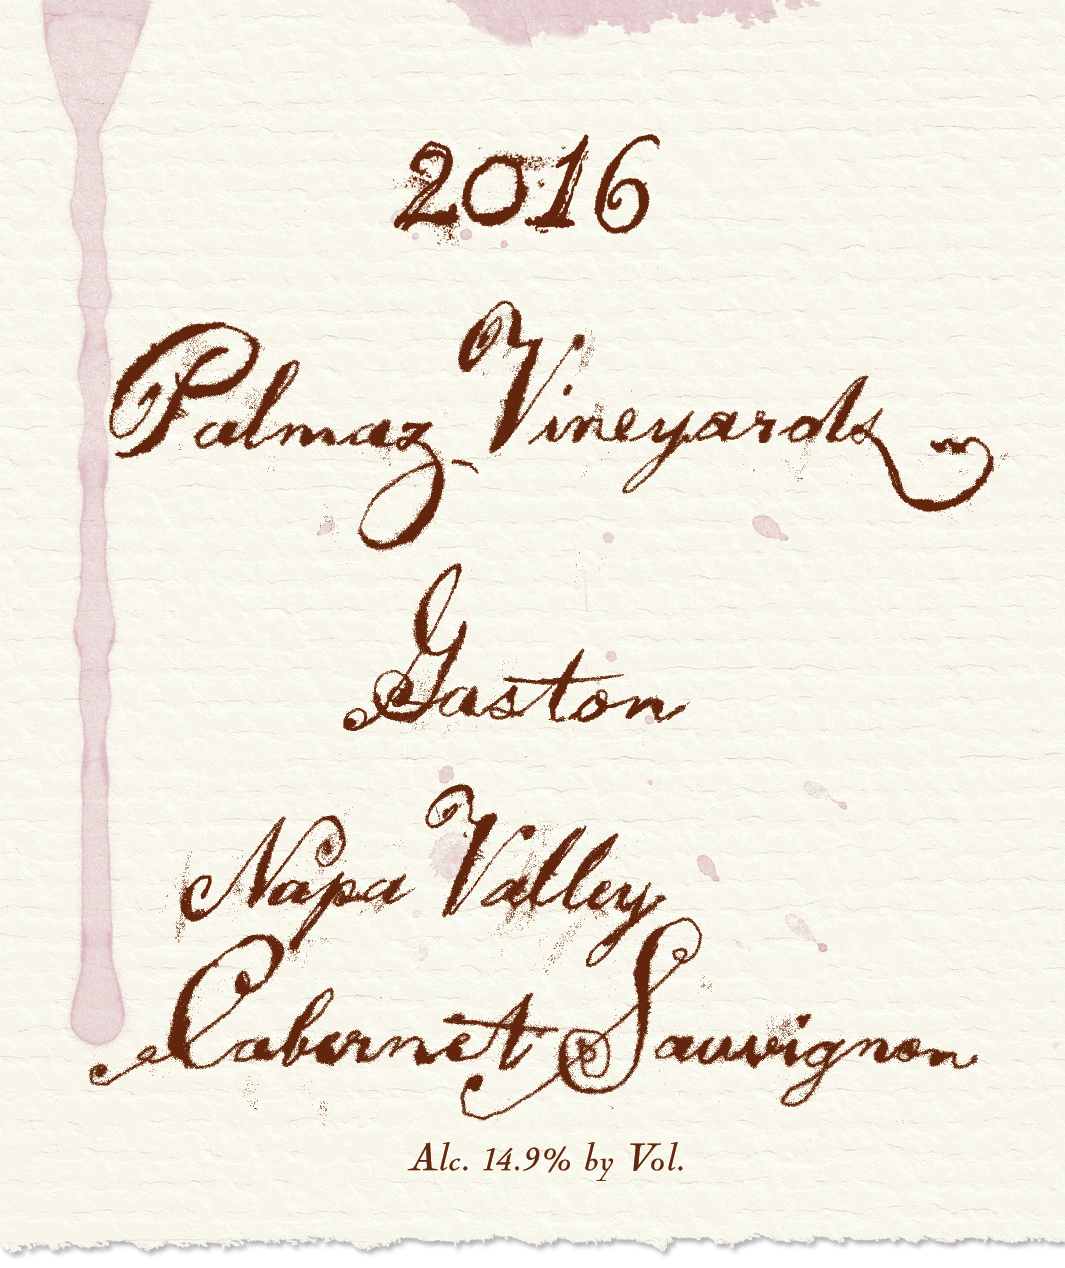 2016
Palmaz Vineyards
Gaston
Napa Valley
Cabernet Sauvignon
Alc. 14.9% by Vol.